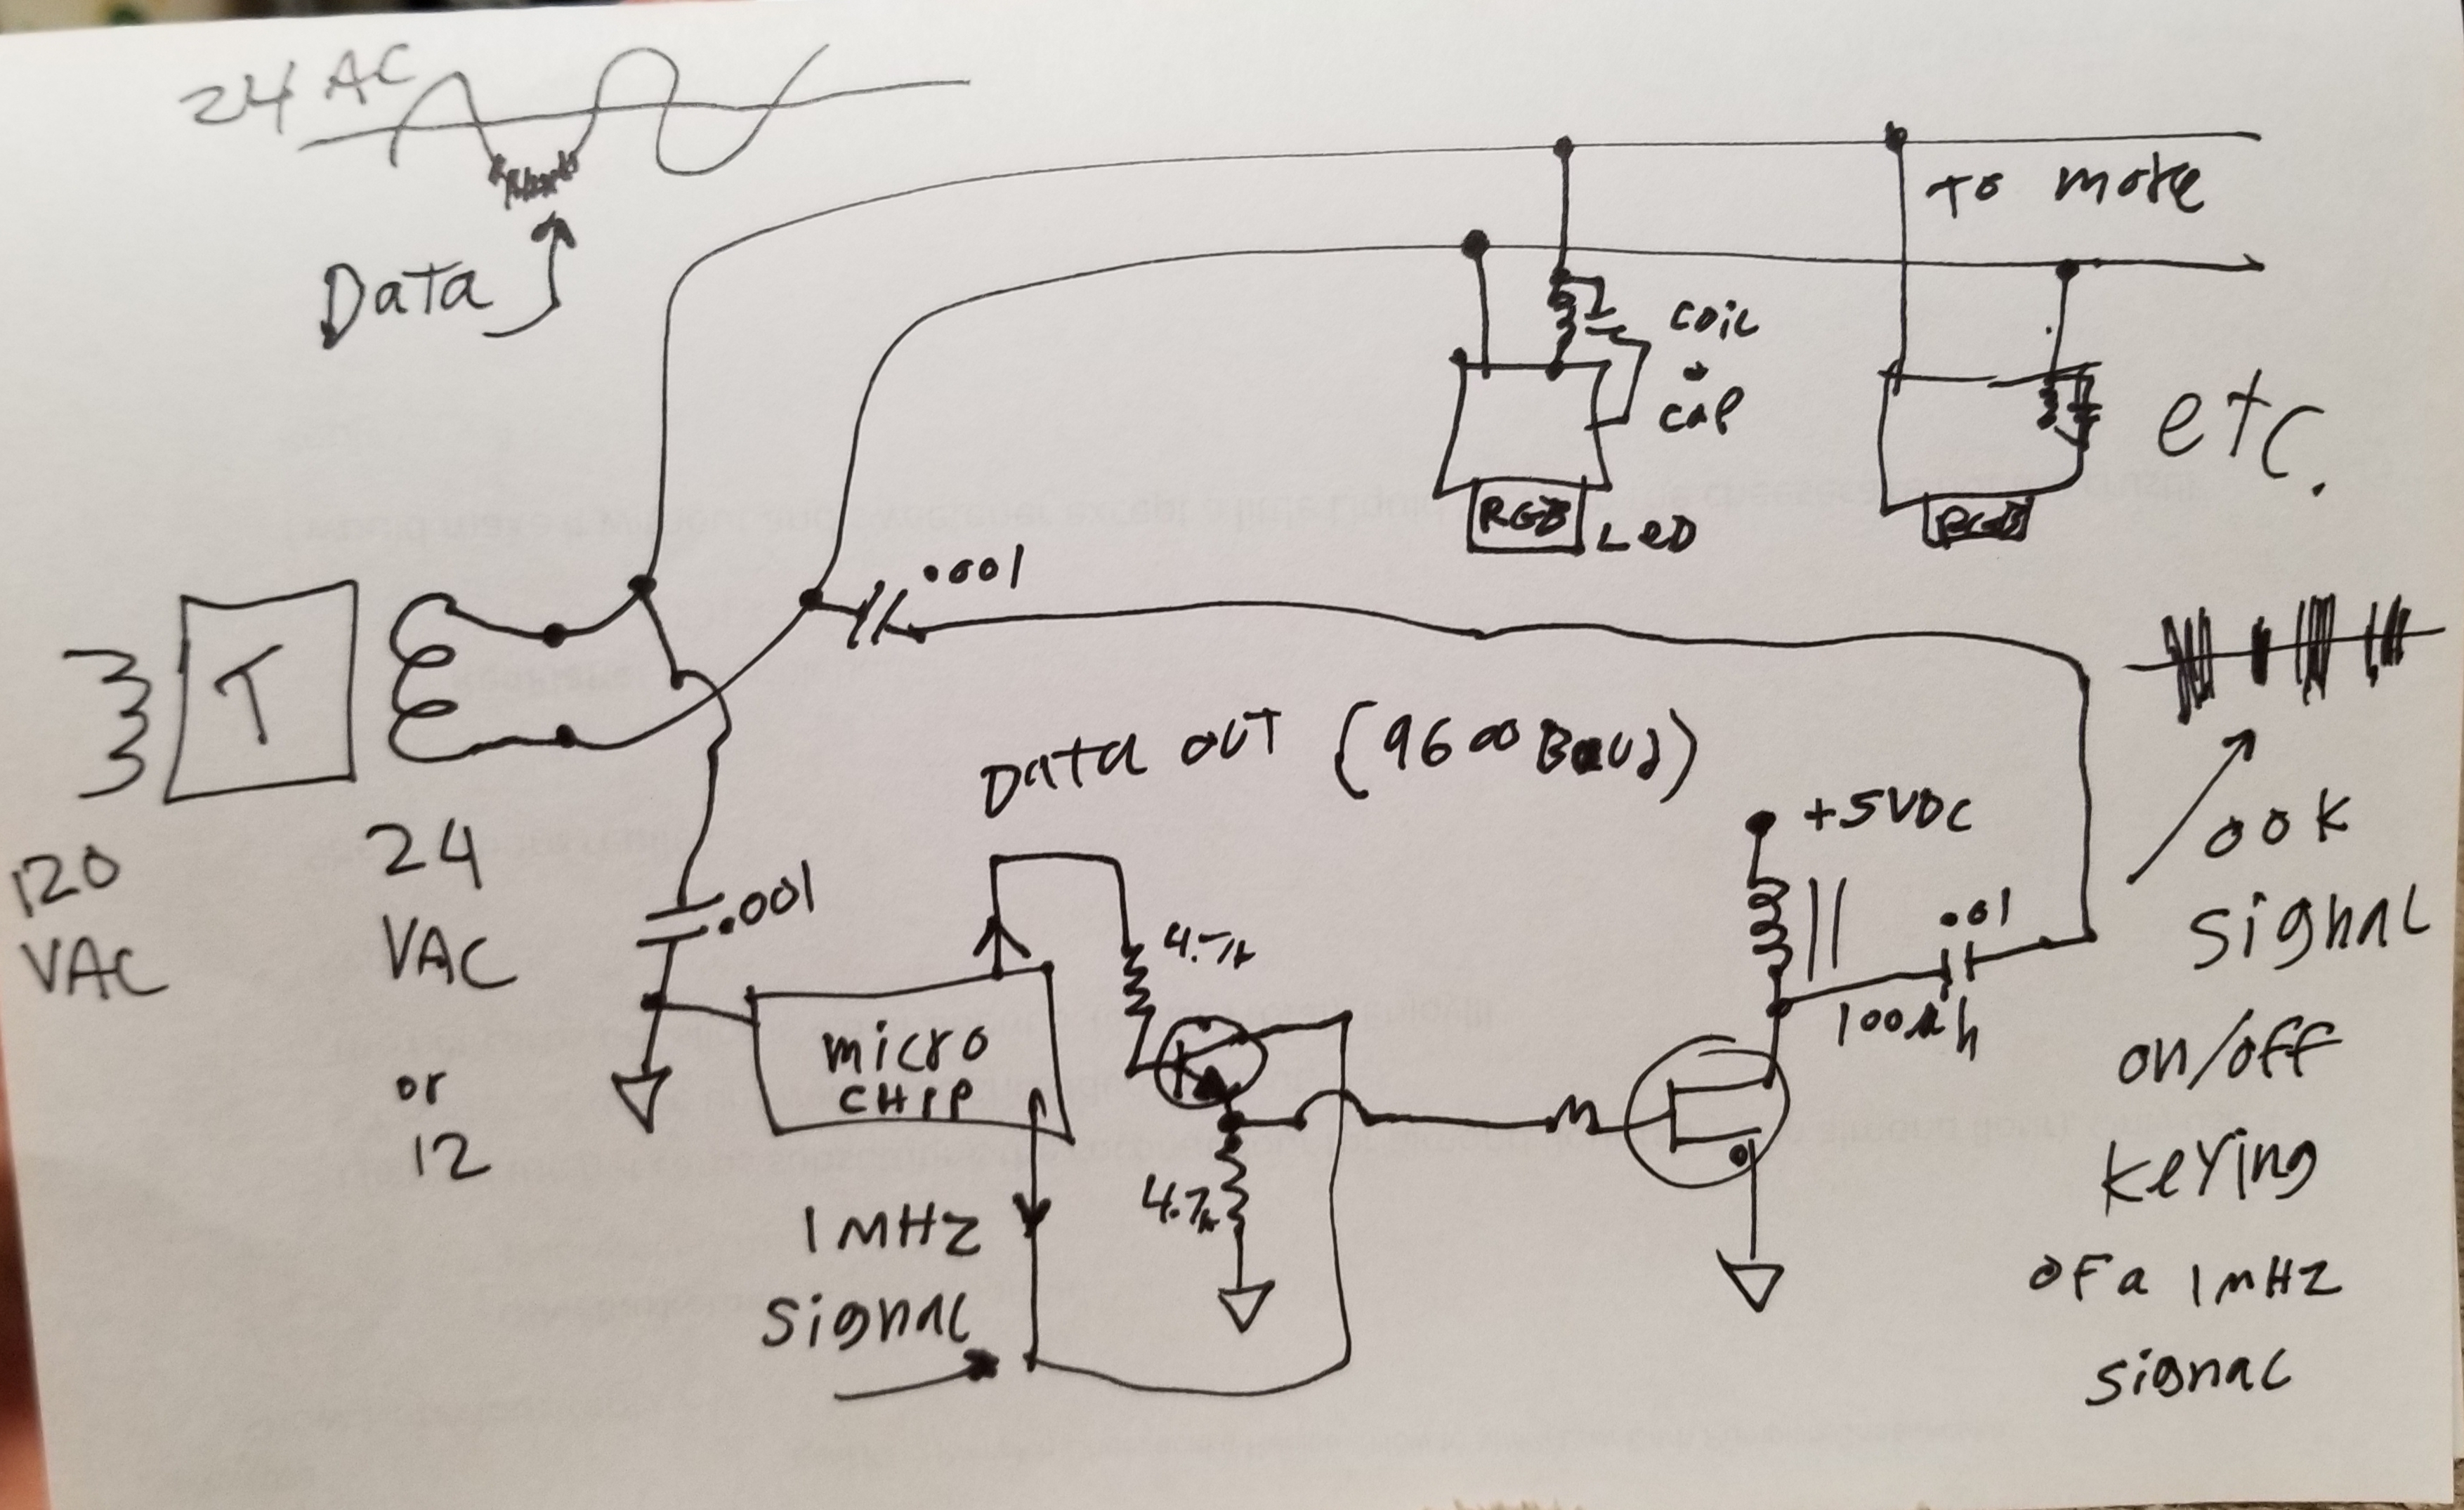 24 AC
Data
to more
coil
cap
etc.
RGB LED
RGB
.001
T
120
VAC
24
VAC
or
12
.001
DATA OUT (9600 Baud)
+5VDC
.01
100uh
4.7k
4.7k
micro
CHIP
1MHZ
Signal
OOK
Signal
on/off
keying
OF a 1MHZ
Signal